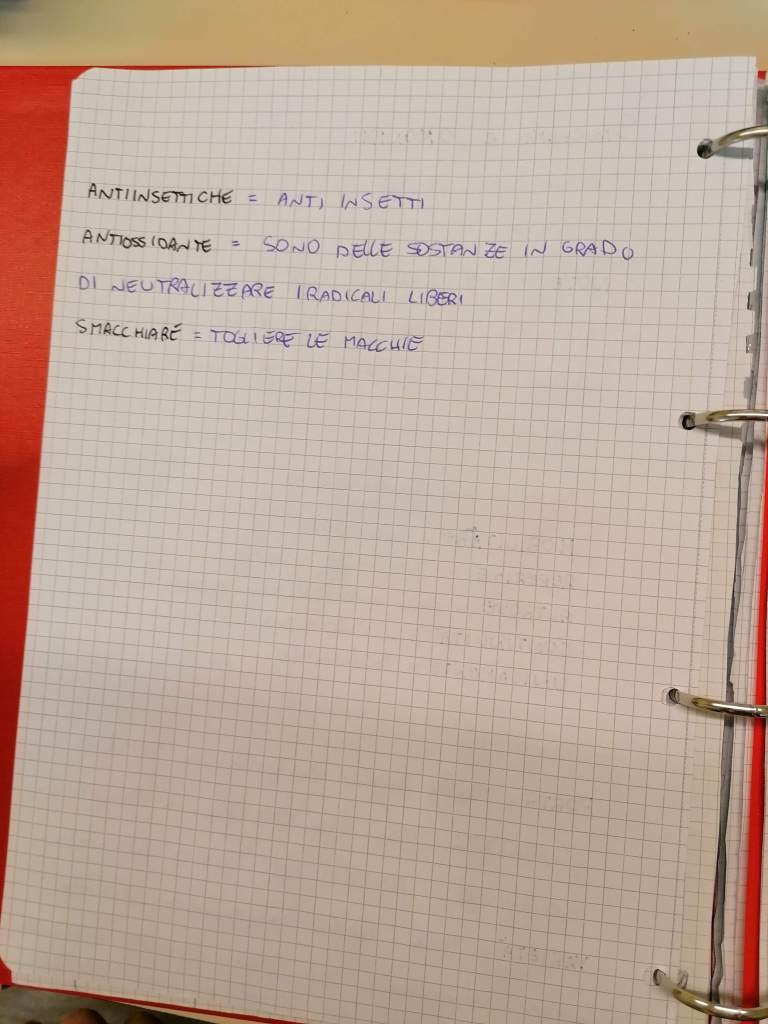 ANTIINSETTICHE = ANTI INSETTI
ANTIOSSIDANTE = SONO DELLE SOSTANZE IN GRADO
DI NEUTRALIZZARE I RADICALI LIBERI
SMACCHIARE = TOGLIERE LE MACCHIE